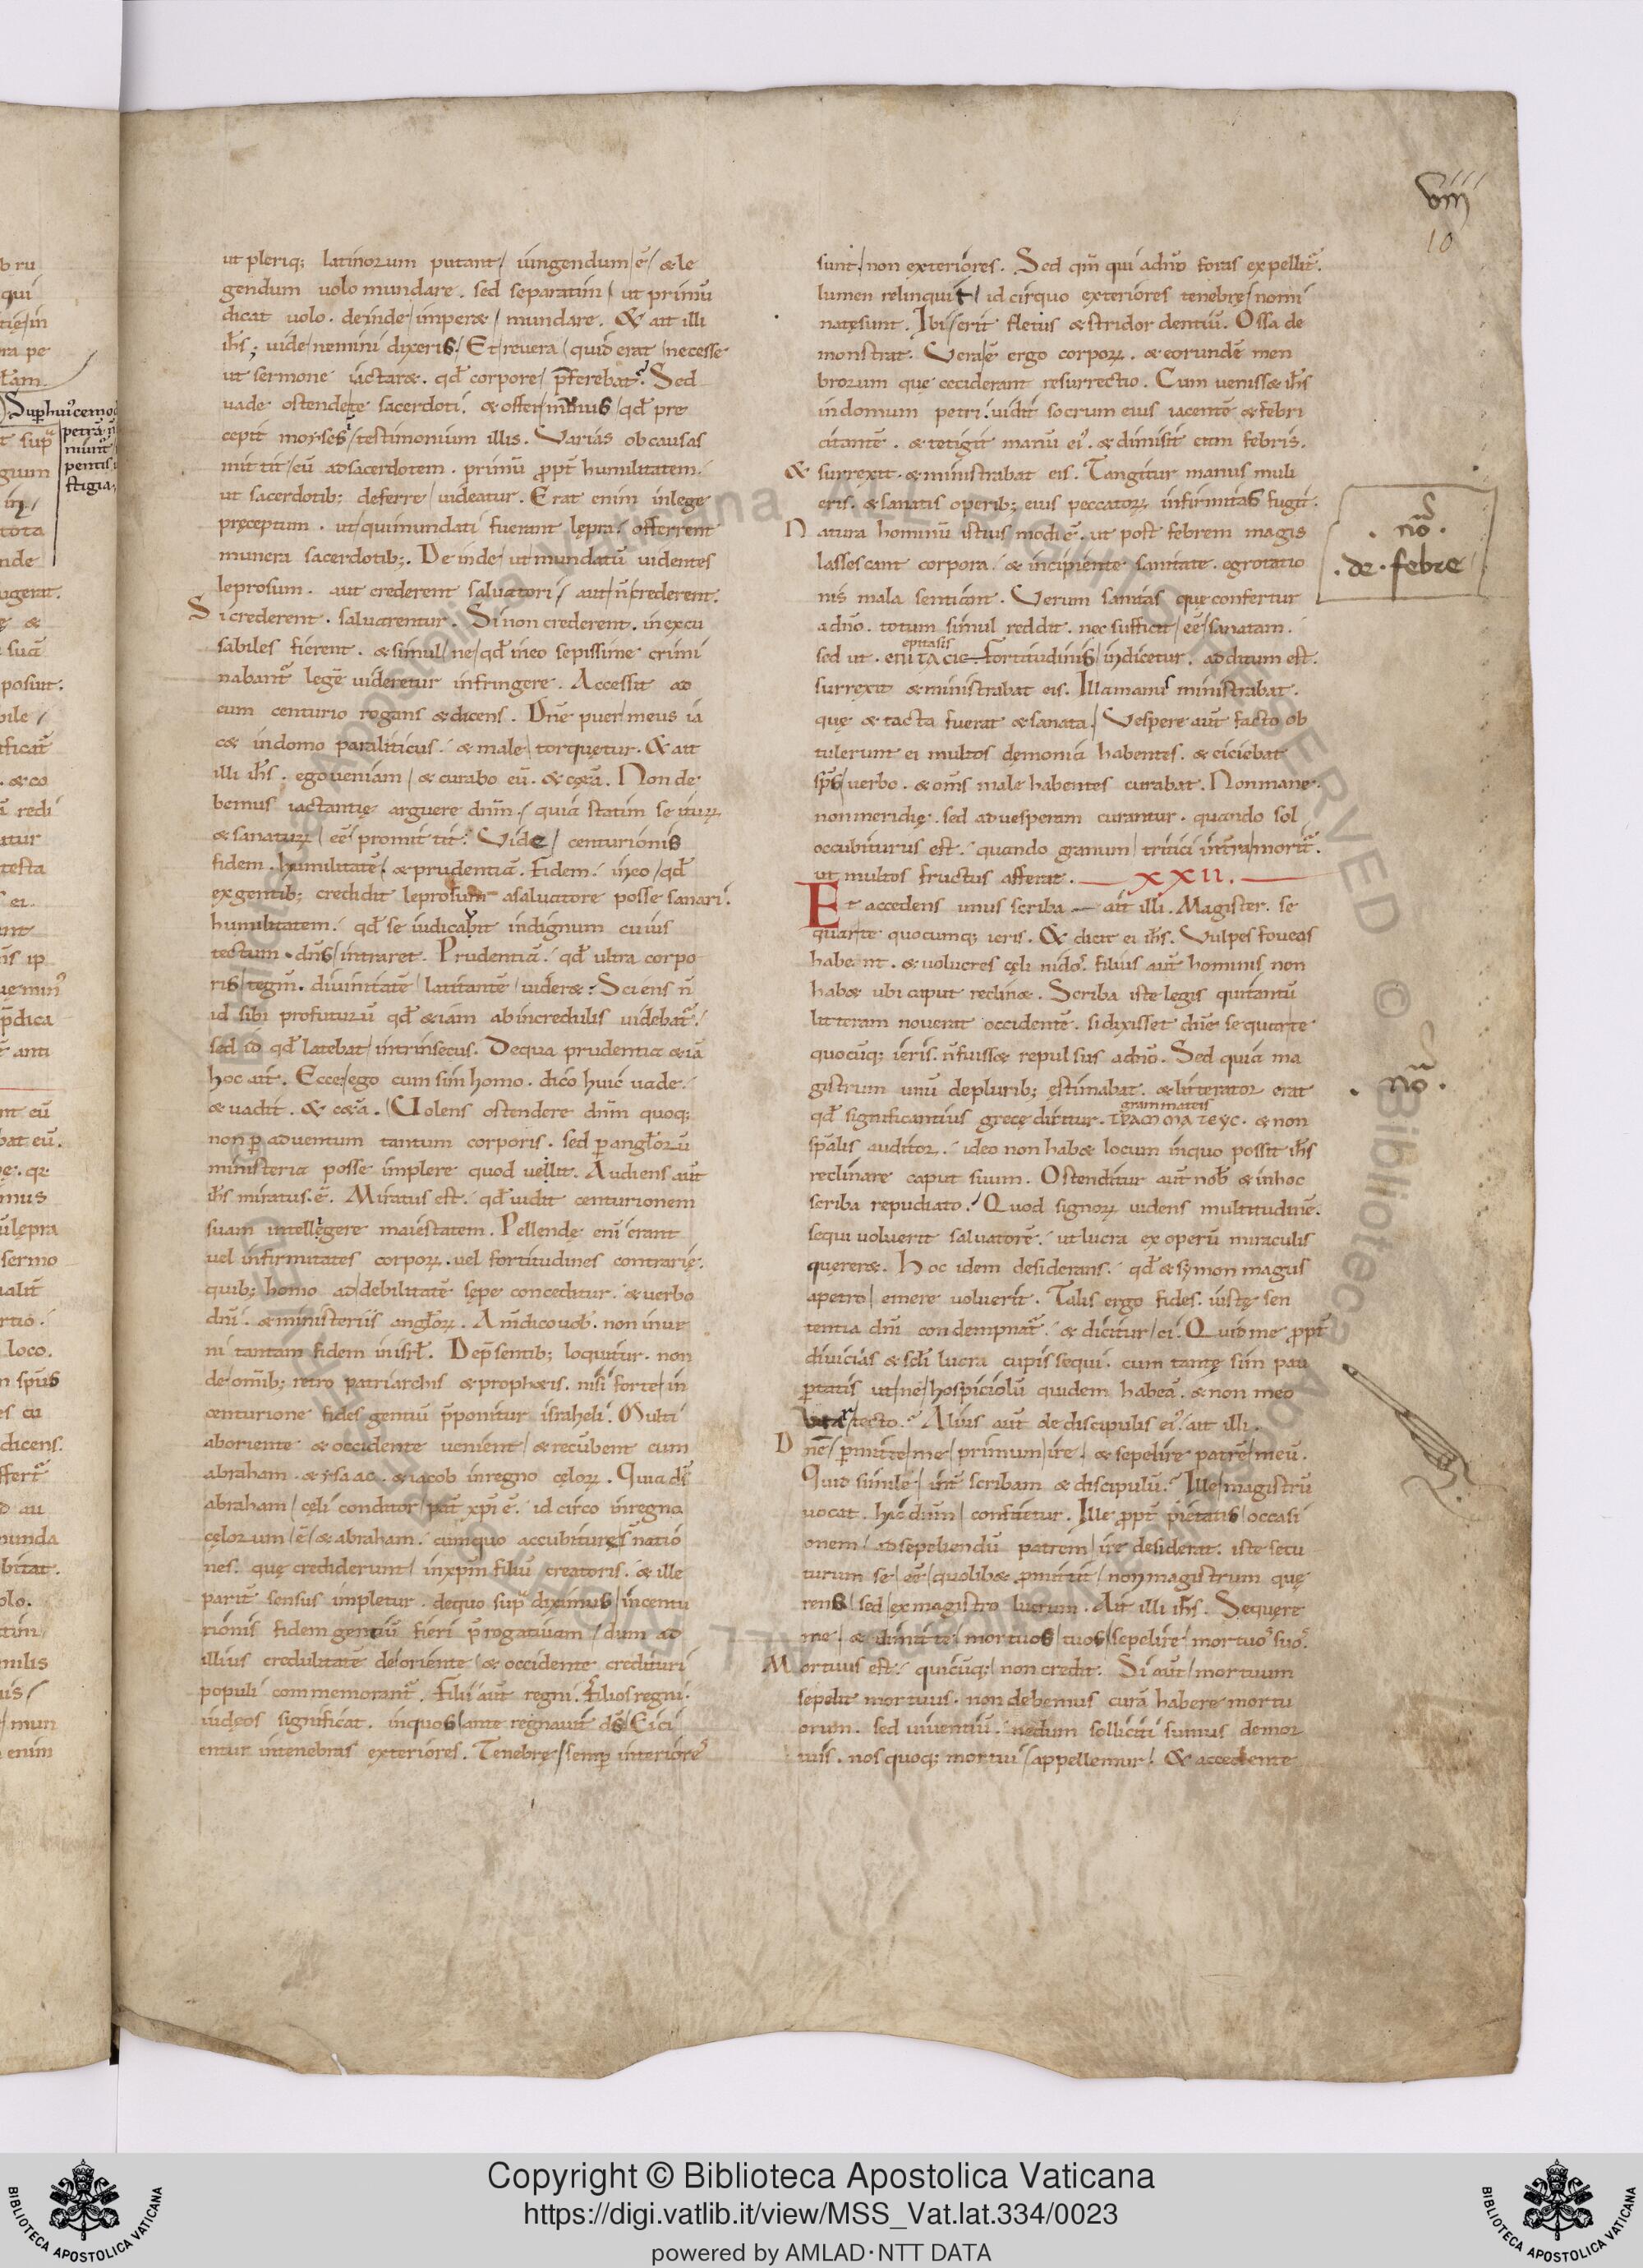 viii
10
ut pleriq; latinorum putant iungendum ē & le
gendum uolo mundare. sed separatim ut primū
dicat uolo. deinde imper& mundare. & ait illi
ihs; uide nemini dixeris. Et reuera quid erat necesse
ut sermone iactar&. qđ corpore p̄ferebat. Sed
uade ostende te sacerdoti. & offer munus qđ pre
cepit moyses testimonium illis. Varias ob causas
mittit eū ad sacerdotem. primū ꝓpt humilitatem.
ut sacerdotib; deferre uideatur. Erat enim in lege
pręceptum. ut qui mundati fuerant lepra offerrent
munera sacerdotib;. Deinde ut mundatū uidentes
leprosum. aut crederent saluatori aut ñ crederent.
Si crederent. saluarentur. Si non crederent. inexcu
sabiles fierent. & simul ne qđ in eo sepissime crimi
nabant legē uideretur infringere. Accessit ad
eum centurio rogans & dicens. Dñe puer meus ia
c& in domo paraliticus. & male torquetur. & ait
illi ihs. ego ueniam & curabo eū. & cęta. Non de
bemus iactantię arguere dnm. quia statim se iturꝝ
& sanaturꝝ eē promittit. Vide centurionis
fidem. humilitatē & prudentiā. Fidem. in eo qđ
ex gentib; credidit leprosum a saluatore posse sanari.
humilitatem. qđ se iudicabit indignum cuius
tectum dns intraret. Prudentiā. qđ ultra corpo
ris tegm̄. diuinitatē latitantē uider&. Sciens ñ
id sibi profuturū qđ &iam ab incredulis uidebat.
sed id qđ latebat intrinsecus. De qua prudentia &iā
hoc ait. Ecce ego cum sim homo. dico huic uade.
& uadit. & c&a. Uolens ostendere dnm quoq;
non ꝑ aduentum tantum corporis. sed ꝑ anglorū
ministeria posse implere quod uellit. Audiens aūt
ihs miratus. ē. Miratus est. qđ uidit centurionem
suam intellegere maiestatem. Pellendę eni erant
uel infirmitates corporꝝ. uel fortitudines contrarię.
quib; homo ad debilitatē sępe conceditur. & uerbo
dni. & ministeriis anglorꝝ. Am̄ dico uob. non inue
ni tantam fidem in isrl. De p̄sentib; loquitur. non
de omib; retro patriarchis & proph&is. nisi forte in
centurione fides gentiū p̄ponitur israheli. Multi
ab oriente & occidente uenient & recūbent cum
abraham. & ysaac. & iacob in regno cęlorꝝ. Quia ds
abraham cęli conditor pat xpi ē. idcirco in regno
cęlorum ē & abraham. cum quo accubituręs natio
nes. quę crediderunt in xpm filiū creatoris. & ille
parit sensus impletur. de quo sup diximus in centu
rionis fidem gentiū fieri p̄rogatiuam dum ad
illius credulitatē de oriente & occidente credituri
populi commemorant. Filii aūt regni. Filios regni.
iudęos significat. in quos ante regnauit ds. Eici
entur in tenebras exteriores. Tenebrę semꝑ interiore
sunt non exteriores. Sed qm qui a dno foras expellit.
lumen relinquit idcirquo exteriores tenebrę nomi
natę sunt. Ibi erit fletus & stridor dentiū. Ossa de
monstrat. Vera ē ergo corporꝝ. & eorundē men
brorum quę ceciderant resurrectio. Cum ueniss& ihs
in domum petri. uidit socrum eius iacentē & febri
citantē. & tetigit manū ei. & dimisit eam febris.
& surrexit. & ministrabat eis. Tangitur manus muli
eris. & sanatis operib; eius peccatorꝝ infirmitas fugit.
Natura hominū istius modi ē. ut post febrem magis
lassescant corpora. & incipiente sanitate. egrotatio
nis mala sentiant. Verum sanitas quę confertur
a dno. totum simul reddit. nec sufficit eē sanatam.
epitasis
sed ut . fortitudinis indicetur. additum est.
surrexit & ministrabat eis. Illa manus ministrabat.
quę & tacta fuerat & sanata. Vespere aūt facto ob
tulerunt ei multos demonia habentes. & eiciebat
sps uerbo. & oms male habentes curabat. Non mane.
non meridię. sed ad uesperam curantur. quando sol
occubiturus est. quando granum tritici in trā morit.
ut multos fructus afferat. XXII.
Et accedens unus scriba ait illi. Magister. se
quar te quocumq; ieris. & dicit ei ihs. Vulpes foueas
habent. & uolucres cęli nidos. filius aūt hominis non
hab& ubi caput reclin&. Scriba iste legis qui tantū
litteram nouerat occidentē. si dixisset dne sequar te
quocūq; ieris. ñ fuiss& repulsus a dno. Sed quia ma
gistrum unū de plurib; ęstimabat. & litterator erat
grammateis
qđ significantius gręce dicitur. ΓΡΑΜΜΑΤΕΥC. & non
spalis auditor. ideo non hab& locum in quo possit ihs
reclinare caput suum. Ostenditur aūt nob & in hoc
scriba repudiato. Quod signorꝝ uidens multitudinē.
sequi uoluerit saluatorē. ut lucra ex operū miraculis
querer&. Hoc idem desiderans. qđ & symon magus
a petro emere uoluerit. Talis ergo fides. iuste sen
tentia dni condempnat. & dicitur ei. Quid me ꝓpt
diuicias & scli lucra cupis sequi. cum tantę sim pau
ꝑtatis ut ne hospiciolū quidem habeā. & non meo
utar tecto. Alius aūt de discipulis ei ait illi.
Dnē ꝑmitte me primum ire & sepelire patrē meū.
Quid simile int scribam & discipulū. Ille magistrū
uocat. hic dnm confitetur. Ille ꝓpt pietatis occasi
onem ad sepeliendū patrem ire desiderat. iste secu
turum se eē quolib& ꝓmittit non magistrum quę
rens sed ex magistro lucrum. Ait illi ihs. Sequere
me & dimitte mortuos tuos sepelire mortuos suos.
Mortuus est. quicūq; non credit. Si aūt mortuum
sepelit mortuus. non debemus curā habere mortu
orum. sed uiuentiū. ne dum solliciti sumus de mor
tuis. nos quoq; mortui appellemur. & accedente
. no .
. de . febre
. no .
Copyright © Biblioteca Apostolica Vaticana
https://digi.vatlib.it/view/MSS_Vat.lat.334/0023
powered by AMLAD·NTT DATA
BIBLIOTECA APOSTOLICA VATICANA
BIBLIOTECA APOSTOLICA VATICANA